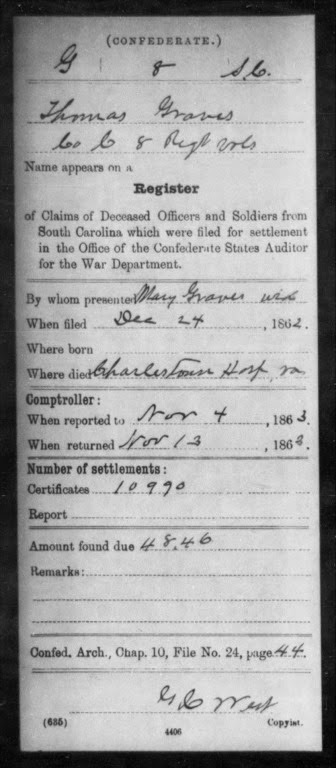 (CONFEDERATE.)
G 8 S.C.
Thomas Graves
Co C 8 Regt Vols
Name appears on a
Register
of Claims of Deceased Officers and Soldiers from
South Carolina which were filed for settlement
in the Office of the Confederate States Auditor
for the War Department.
By whom presented Mary Graves wid
When filed Dec 24, 1862.
Where born
Where died Charlestown Hosp, va
Comptroller:
When reported to Nov 4, 1863.
When returned Nov 13, 1863.
Number of settlements:
Certificates 10990
Report
Amount found due 48.46
Remarks:
Confed. Arch., Chap. 10, File No. 24, page 44.
G C West
(635) Copyist.
4406